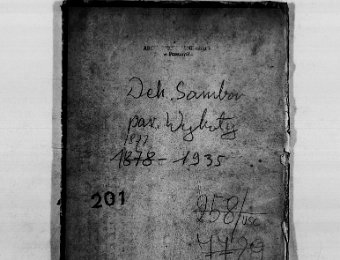 w Przemyślu
Dek. Sambor
par. Wykoty
1877
1878-1935
201
258/USC
7729